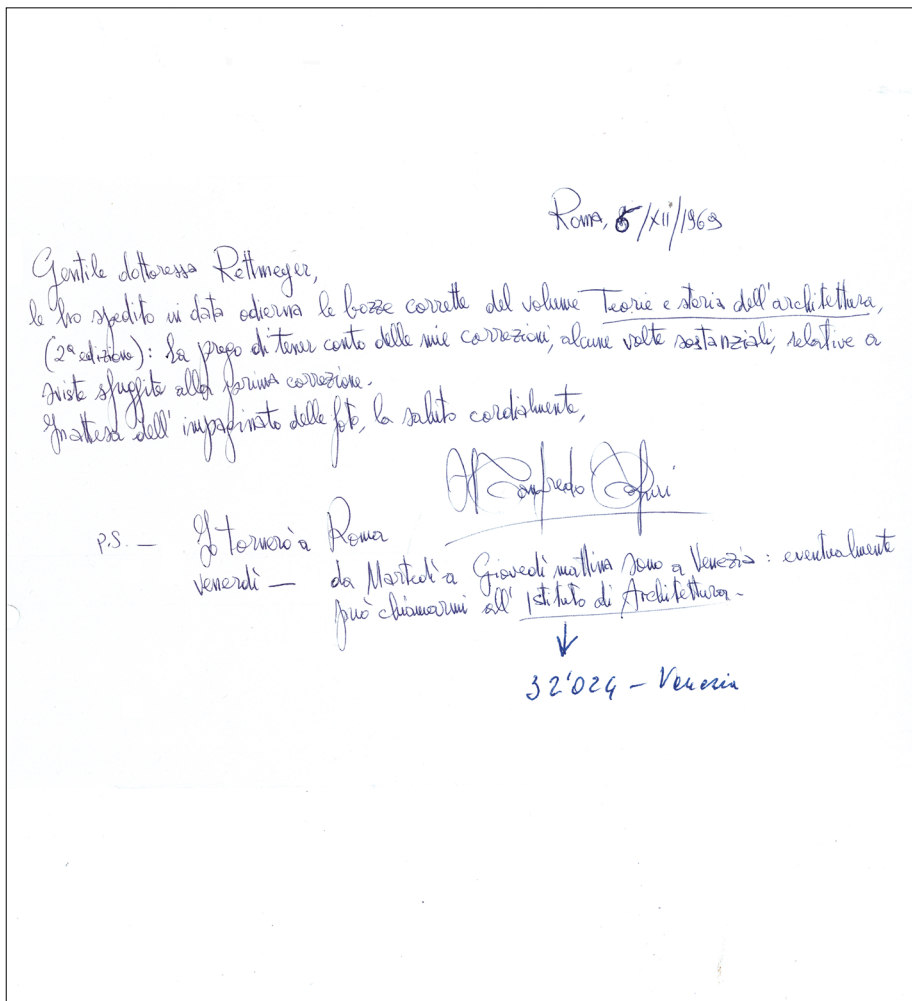 Roma, 5/XII/1969
Gentile dottoressa Rettmeyer,
le ho spedito in data odierna le bozze corrette del volume Teorie e storia dell'architettura,
(2ª edizione): la prego di tener conto delle mie correzioni, alcune volte sostanziali, relative a
sviste sfuggite alla prima correzione.
In attesa dell'impaginato delle foto, la saluto cordialmente,
Manfredo Tafuri
P.S. — Io tornerò a Roma
venerdì — da Martedì a Giovedì mattina sono a Venezia: eventualmente
può chiamarmi all'Istituto di Architettura.
32'024 - Venezia